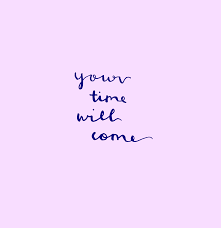 your
time
will
come